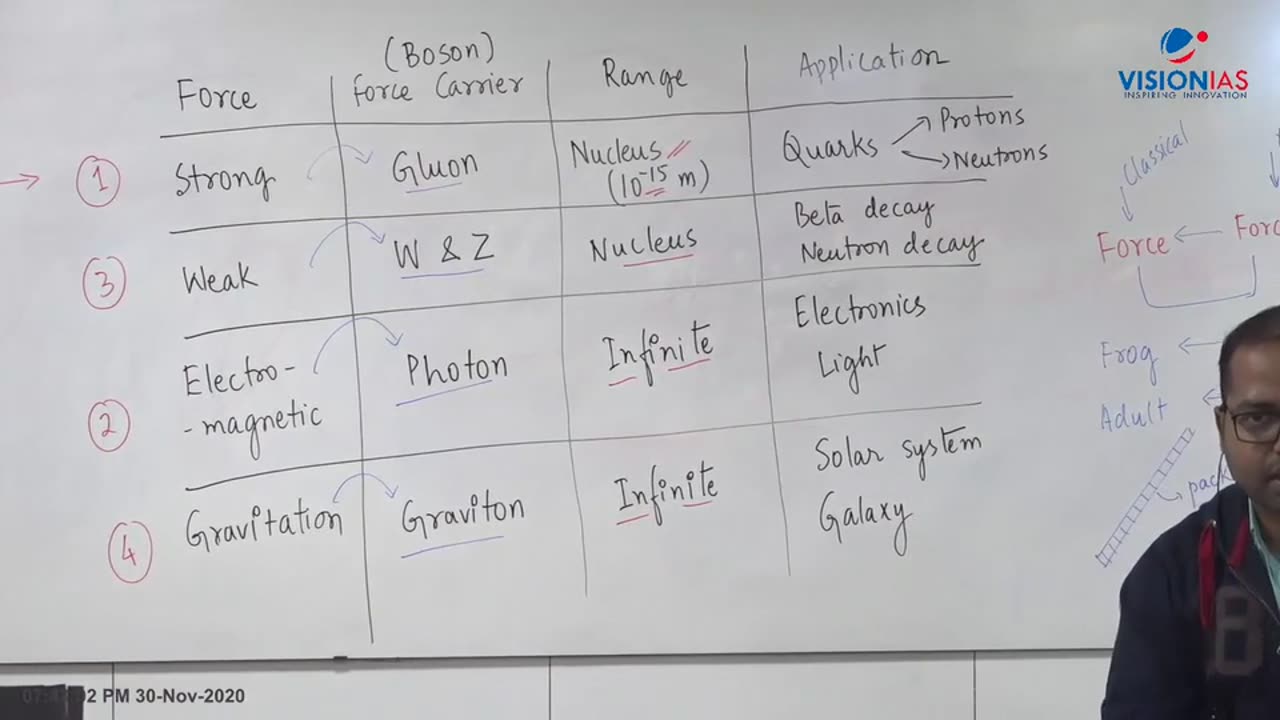 (Boson)
Force
Force Carrier
Range
Application
VISIONIAS
INSPIRING INNOVATION
1
Strong
Gluon
Nucleus
(10⁻¹⁵ m)
Quarks
Protons
Neutrons
3
Weak
W & Z
Nucleus
Beta decay
Neutron decay
2
Electro-
-magnetic
Photon
Infinite
Electronics
Light
4
Gravitation
Graviton
Infinite
Solar system
Galaxy
Classical
Force
Frog
Adult
PM 30-Nov-2020